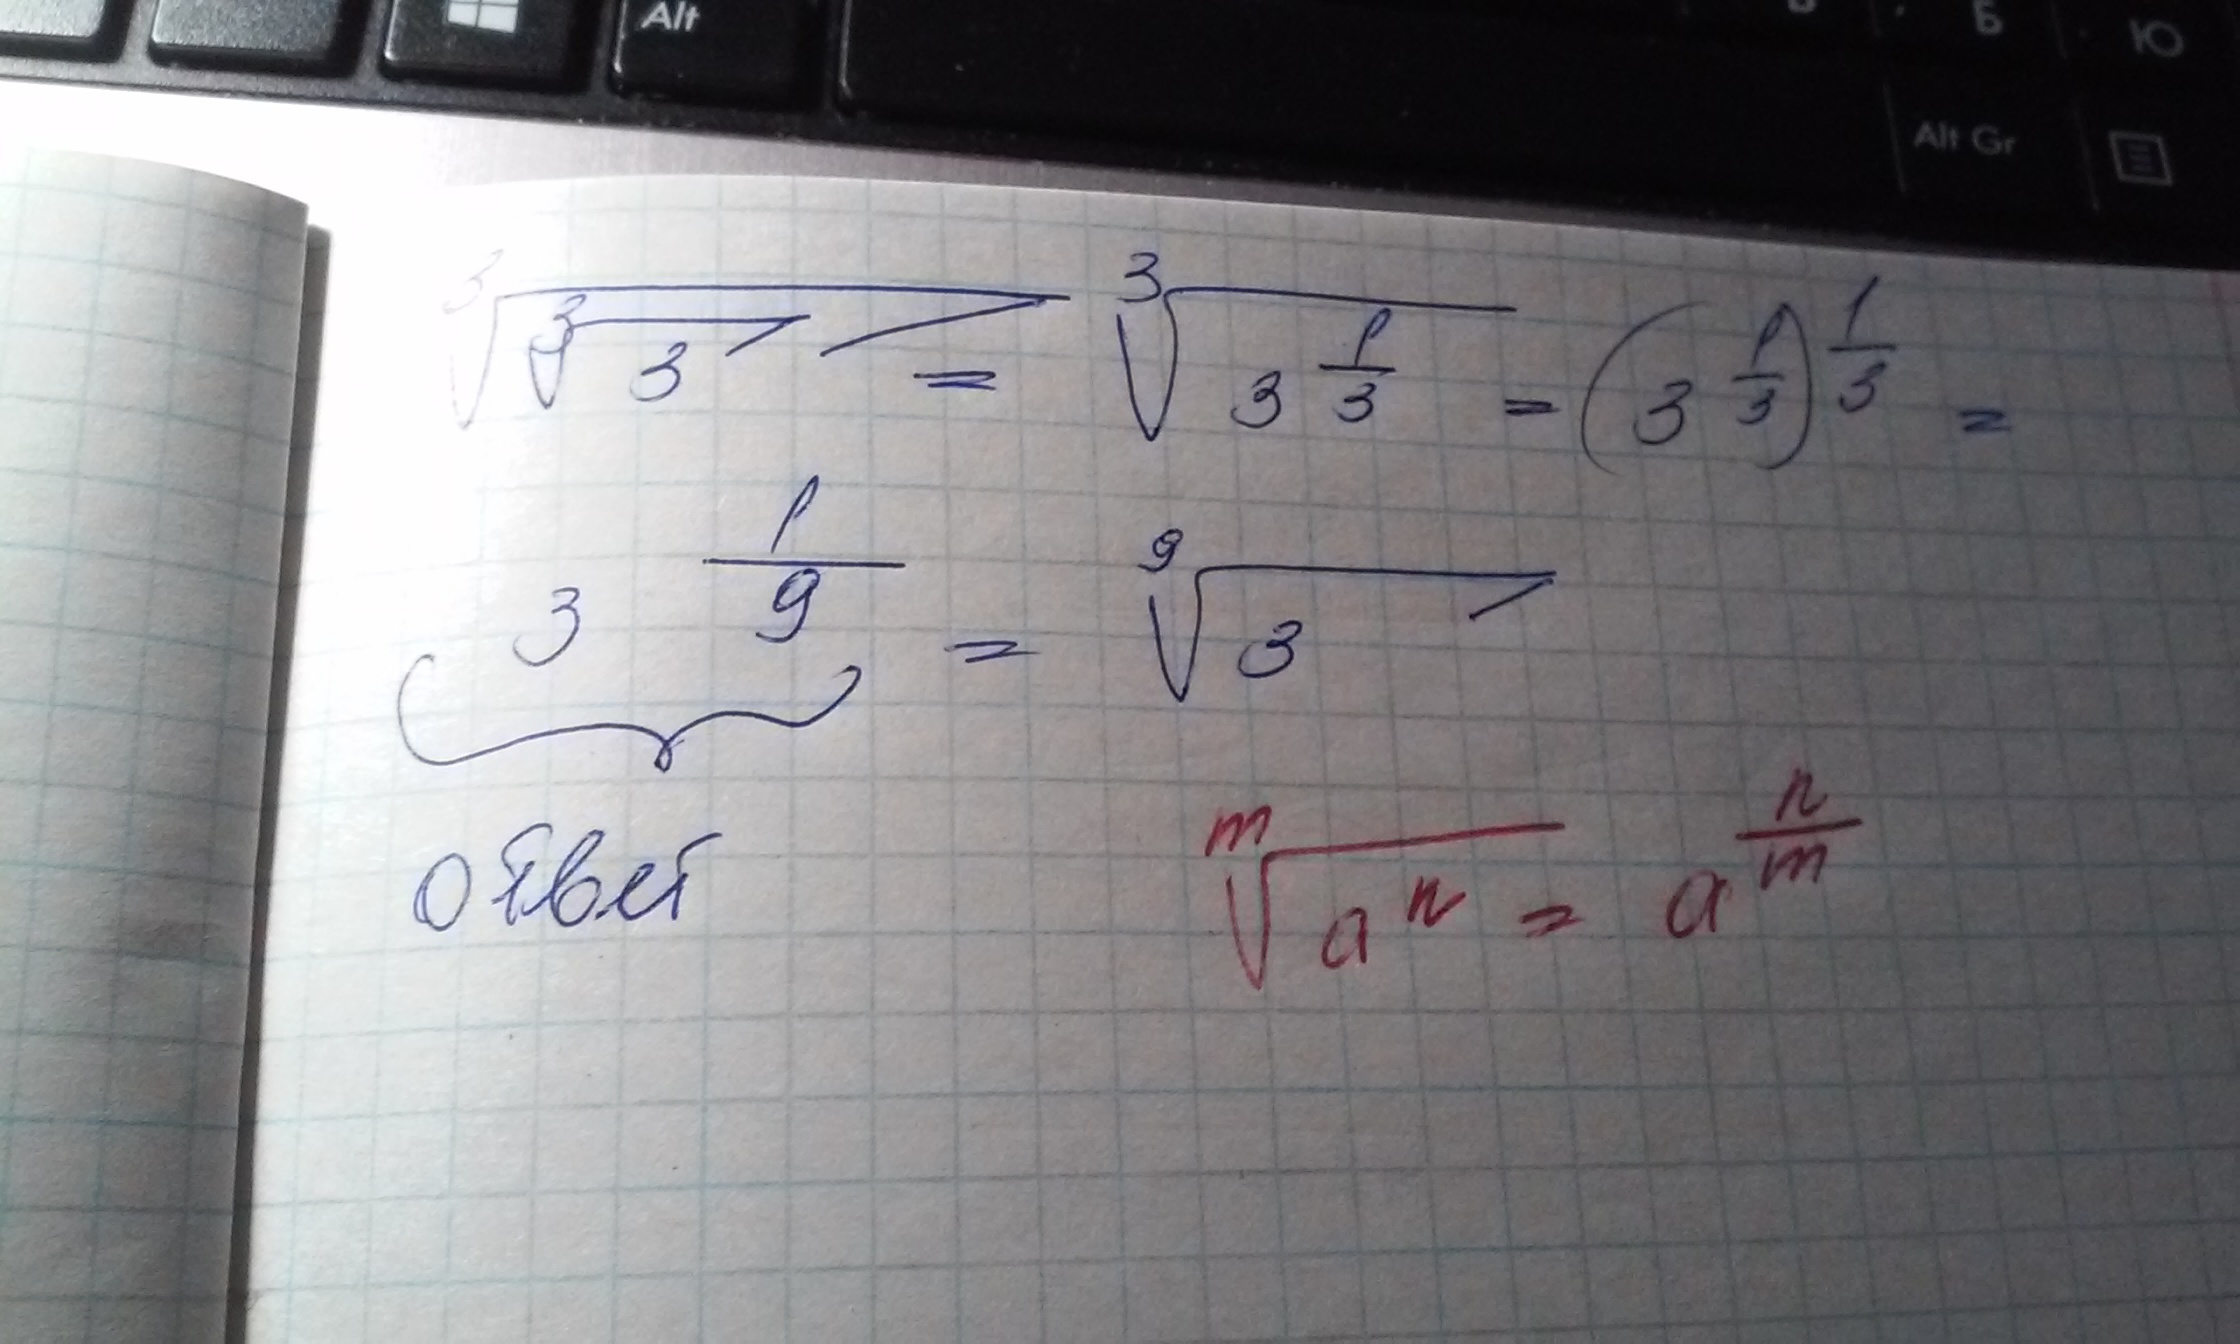 Alt
Б Ю
Alt Gr
∛(∛3) = ∛(3^(1/3)) = (3^(1/3))^(1/3) =
3^(1/9) = ⁹√3
ответ
ᵐ√(aⁿ) = a^(n/m)